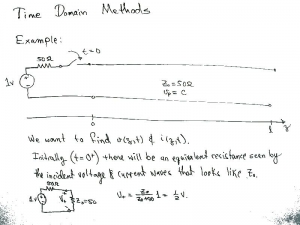 Time Domain Methods
Example:
t=0
50Ω
1v
Z₀ = 50Ω
Vp = C
0
1
z
We want to find v(z,t) & i(z,t).
Initially (t=0⁺) there will be an equivalent resistance seen by
the incident voltage & current waves that looks like Z₀.
50Ω
1v
V₀
Z₀=50
V₀ = Z₀/(Z₀+50) 1 = 1/2 V.